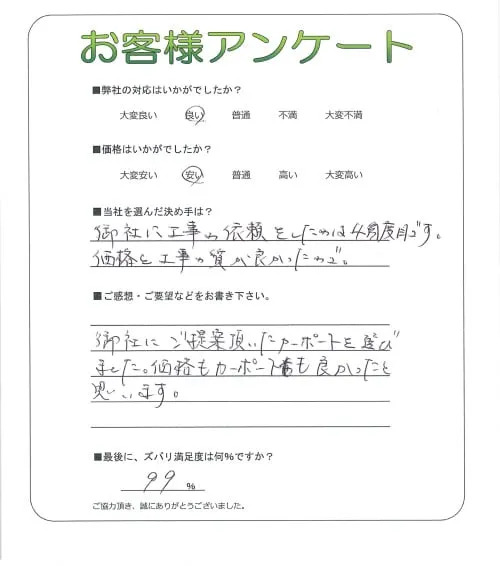 お客様アンケート
■弊社の対応はいかがでしたか？
大変良い 良い 普通 不満 大変不満
■価格はいかがでしたか？
大変安い 安い 普通 高い 大変高い
■当社を選んだ決め手は？
御社に工事の依頼をしたのは4度目です。
価格と工事の質が良かったので。
■ご感想・ご要望などをお書き下さい。
御社にご提案頂いたカーポートを選び
ました。価格もカーポートも良かったと
思います。
■最後に、ズバリ満足度は何％ですか？
99 ％
ご協力頂き、誠にありがとうございました。